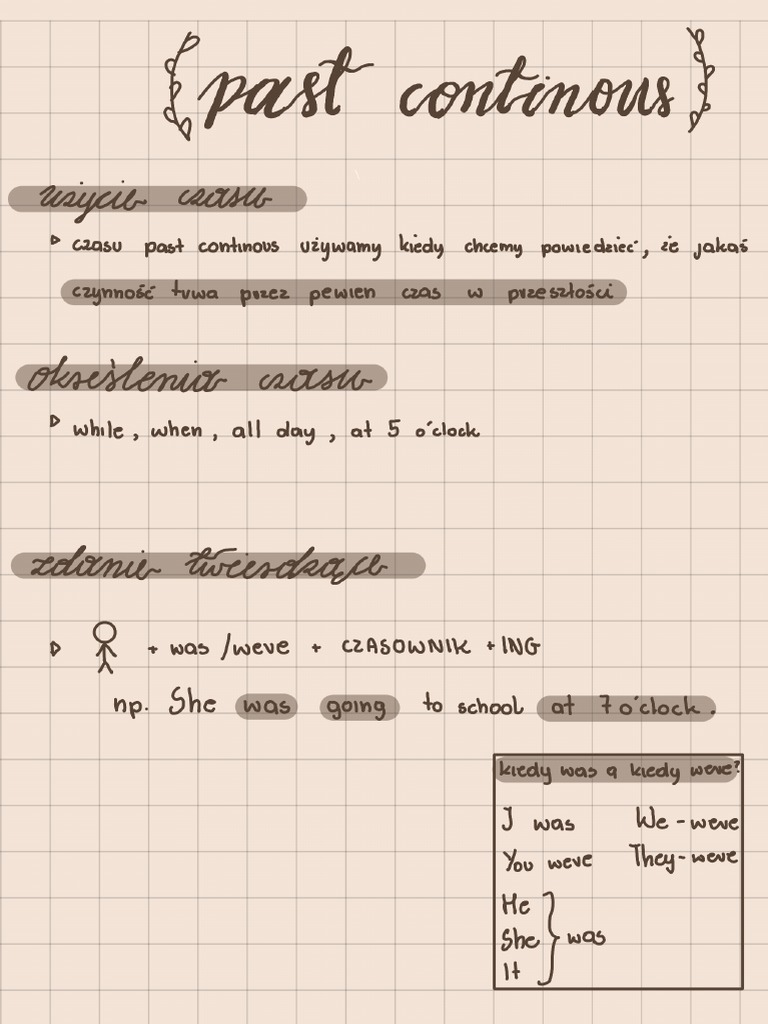 past continous
użycie czasu
czasu past continous używamy kiedy chcemy powiedzieć, że jakaś
czynność trwa przez pewien czas w przeszłości
określenia czasu
while, when, all day, at 5 o'clock
zdanie twierdzące
+ was /were + CZASOWNIK + ING
np. She was going to school at 7 o'clock.
kiedy was a kiedy were?
I was We - were
You were They - were
He
She } was
It